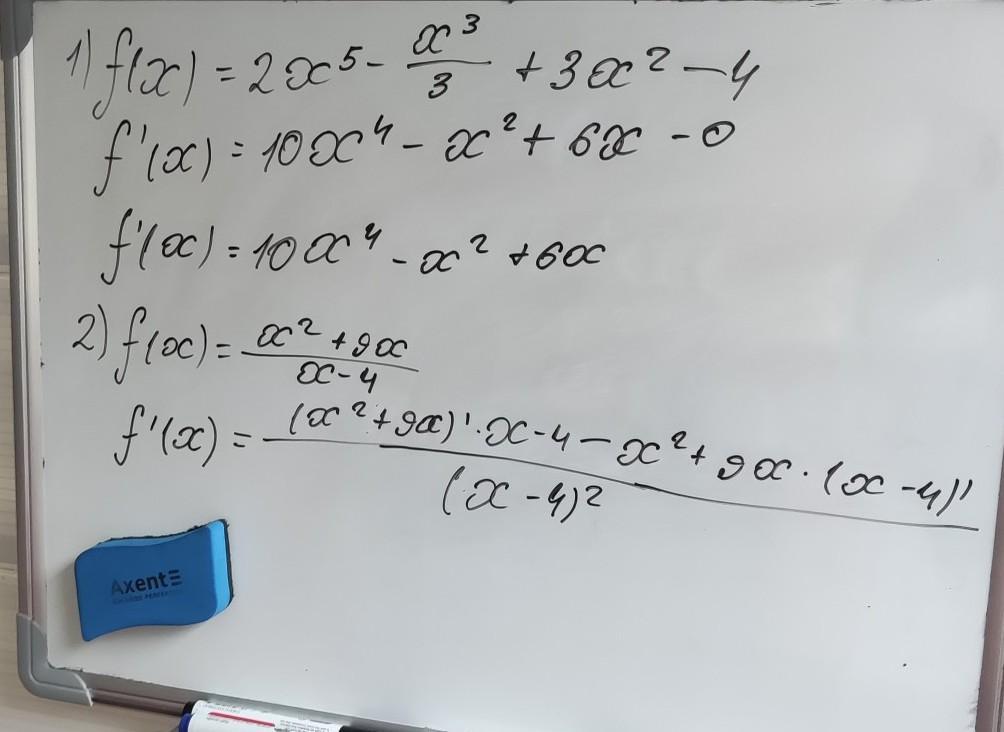 1) f(x) = 2x⁵ - x³/3 + 3x² - 4
f'(x) = 10x⁴ - x² + 6x - 0
f'(x) = 10x⁴ - x² + 6x
2) f(x) = (x² + 9x)/(x - 4)
f'(x) = ((x² + 9x)' · x - 4 - x² + 9x · (x - 4)')/(x - 4)²
Axent